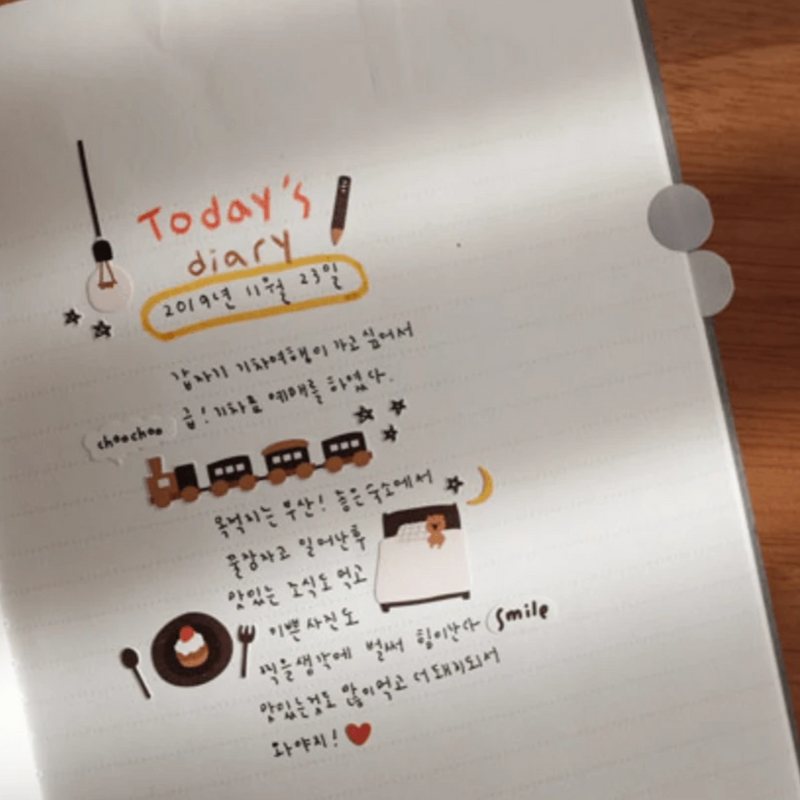 Today's
diary
2019년 11월 23일
갑자기 기차여행이 가고싶어서
급! 기차표 예매를 하였다.
choochoo
목적지는 부산! 좋은숙소에서
꿀잠자고 일어난후
맛있는 조식도 먹고
이쁜사진도
찍을생각에 벌써 힘이난다 smile
맛있는것도 많이먹고 더돼지되서
와야지!